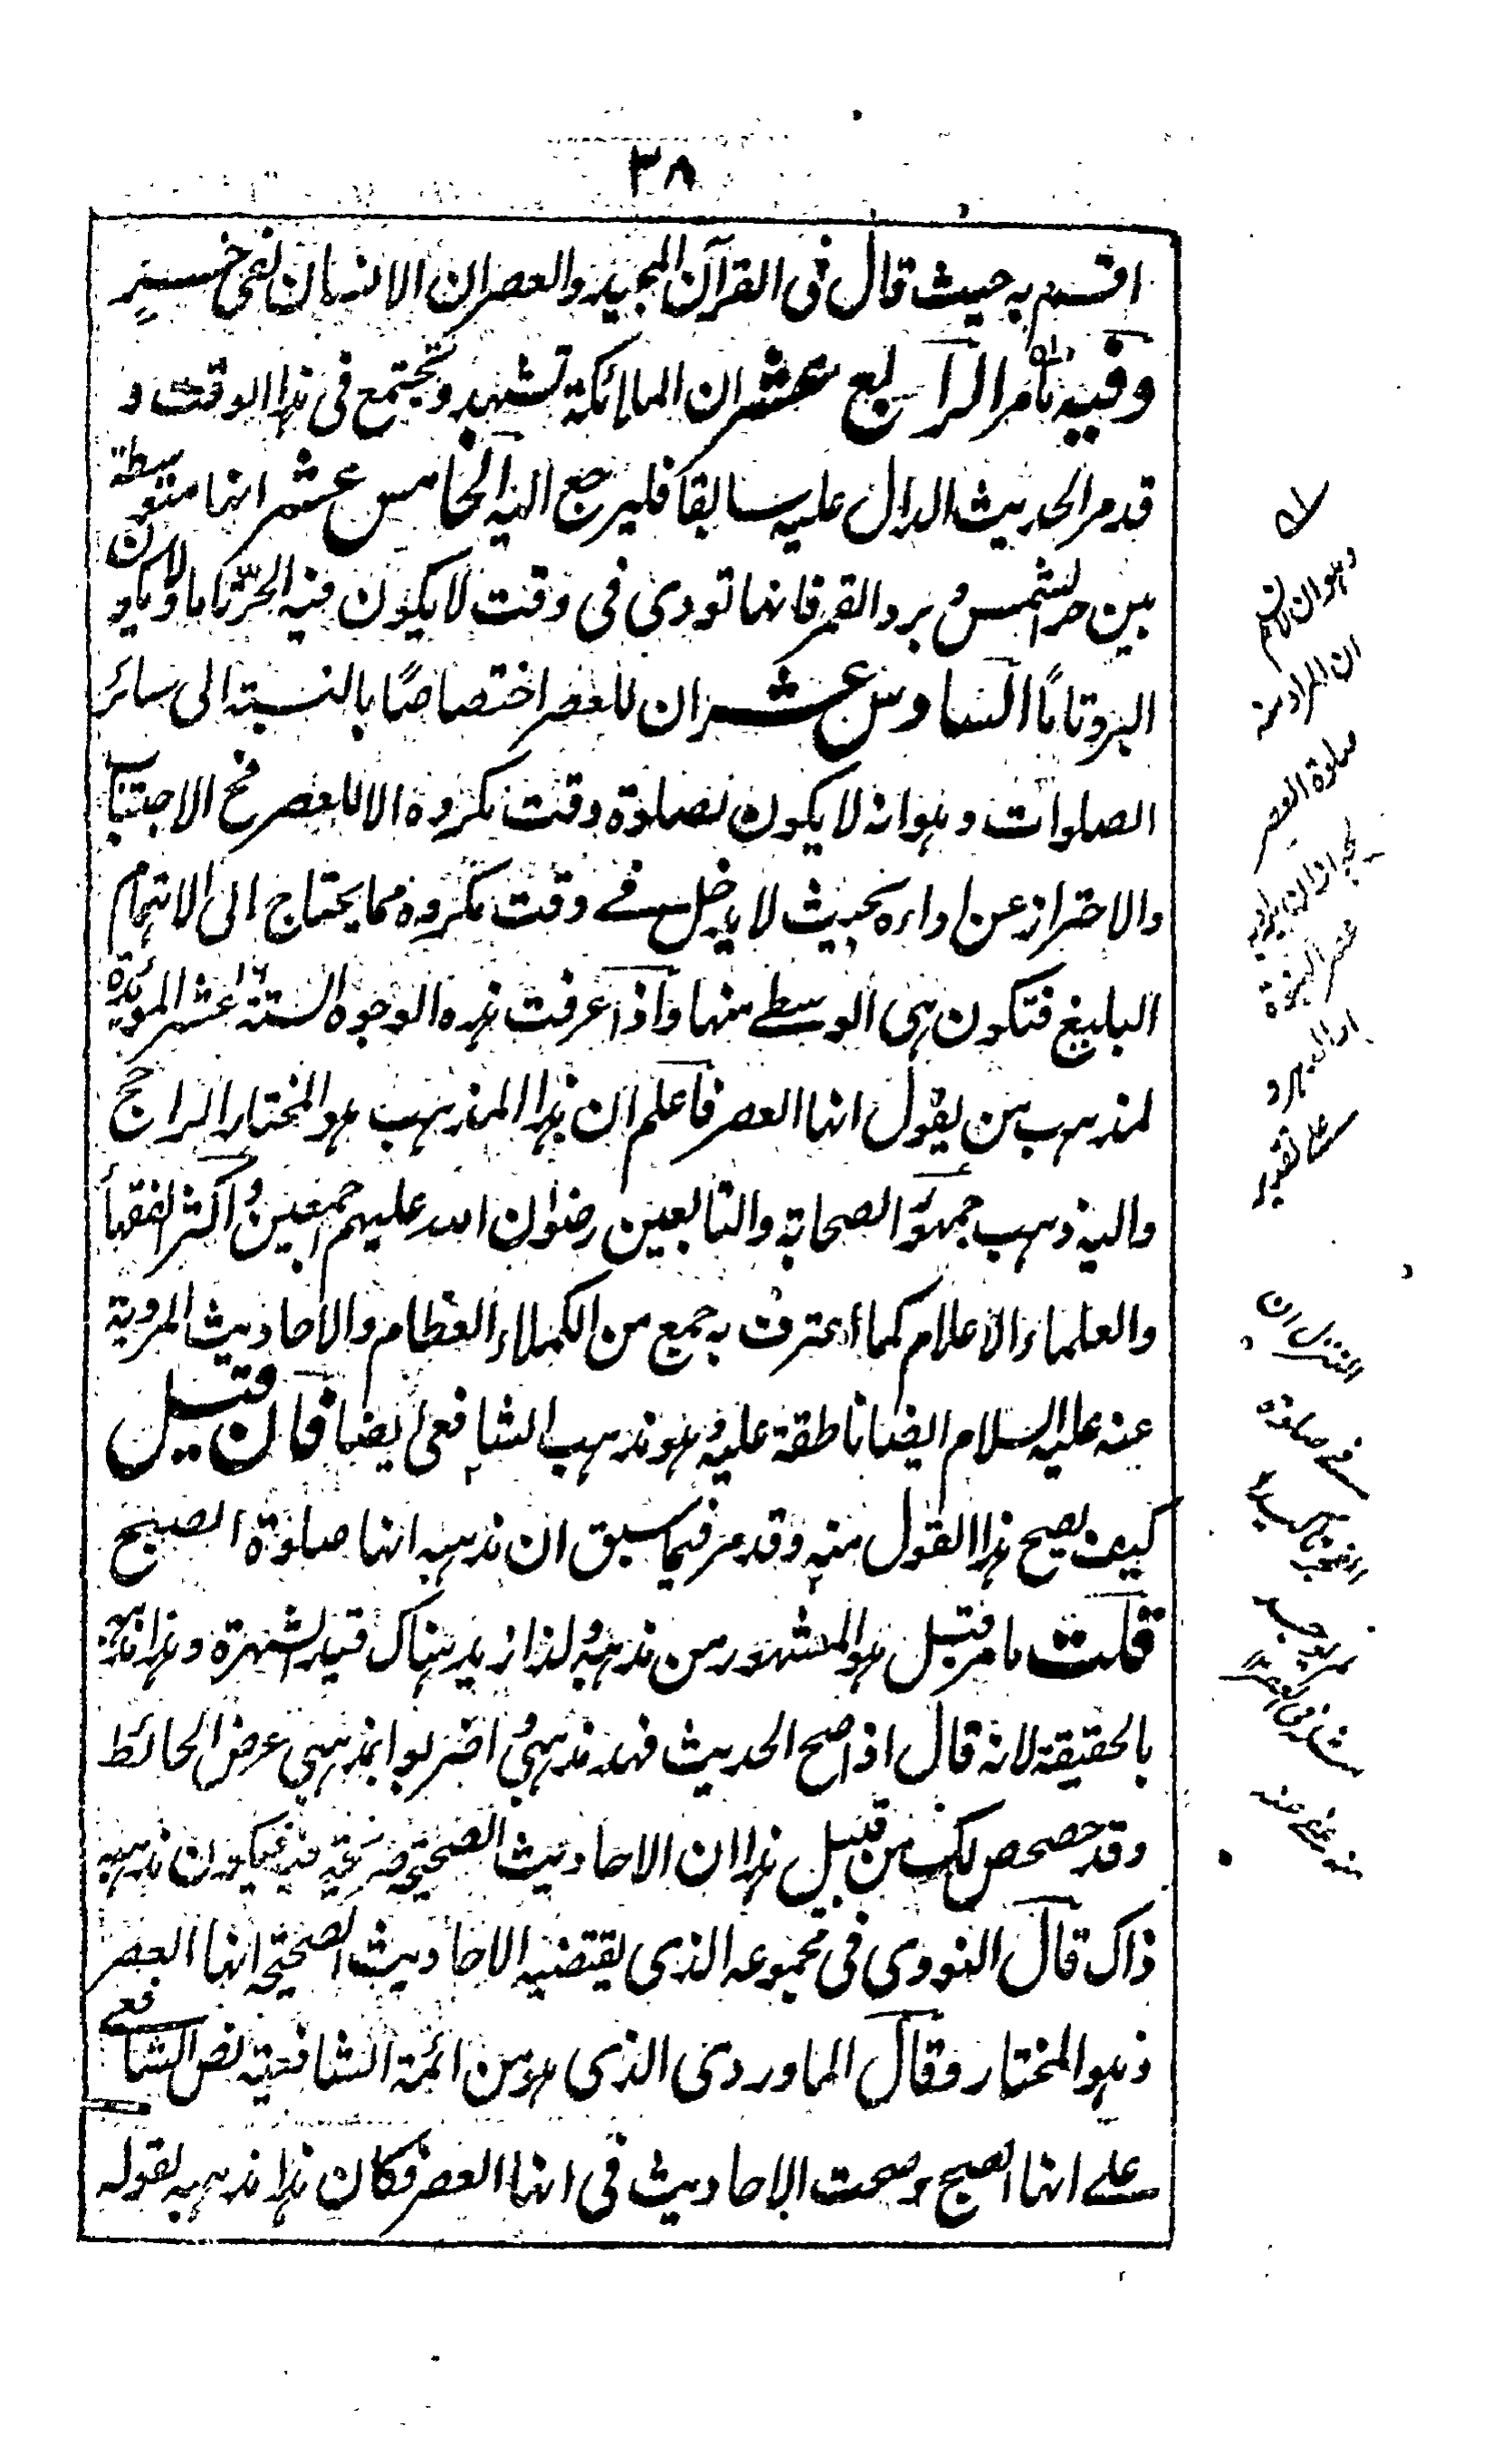 ٣٨
اقسم به حيث قال فى القرآن المجيد والعصر ان الانسان لفى خسرٍ
وفيه مامر الرابع عشر ان الملائكة تشهد وتجتمع فى هذا الوقت و
قد مر الحديث الدال عليه سابقا فليرجع اليه الخامس عشر انها متوسطة
بين حر الشمس وبرد القمر فانها تودى فى وقت لا يكون فيه الحرّ تاما ولا يكون
البرد تامًا السادس عشر ان للعصر اختصاصًا بالنسبة الى سائر
الصلوات وهو انه لا يكون لصلوة وقت مكروه الا للعصر فح الاجتناب
والاحتراز عن اداءه بحيث لا يدخل فے وقت مكروه مما يحتاج الى الاهتمام
البليغ فتكون هى الوسطے منها واذا عرفت هذه الوجوه الستة عشر المؤيدة
لمذهب من يقول انها العصر فاعلم ان هذا المذهب هو المختار الراجح
واليه ذهب جمهور الصحابة والتابعين رضوان الله عليهم اجمعين واكثر الفقهاء
والعلماء الاعلام كما اعترف به جمع من الكملاء العظام والاحاديث المروية
عنه عليه السلام ايضا ناطقة عليه وهو مذهب الشافعى ايضا فان قيل
كيف يصح هذا القول منه وقد مر فيما سبق ان مذهبه انها صلوة الصبح
قلت ما مر قبل هو المشهور من مذهبه ولذا ازيد هناك قيد الشهرة وهذا مذهبه
بالحقيقة لانه قال اذا صح الحديث فهو مذهبى واضربوا بمذهبى عرض الحائط
وقد حصحص لك من قبيل هذا ان الاحاديث الصحيحة صريحة فيه فيكون مذهبه
ذاك قال النووى فى مجموعه الذى يقتضيه الاحاديث الصحيحة انها العصر
وهو المختار وقال الماوردى الذى هو من ائمة الشافعية نص الشافعے
علے انها الصبح وصحت الاحاديث فى انها العصر فكان هذا مذهبه لقوله
ان المراد منه
صلوة العصر
علے تقدير
التنزل ان
فے صلوة